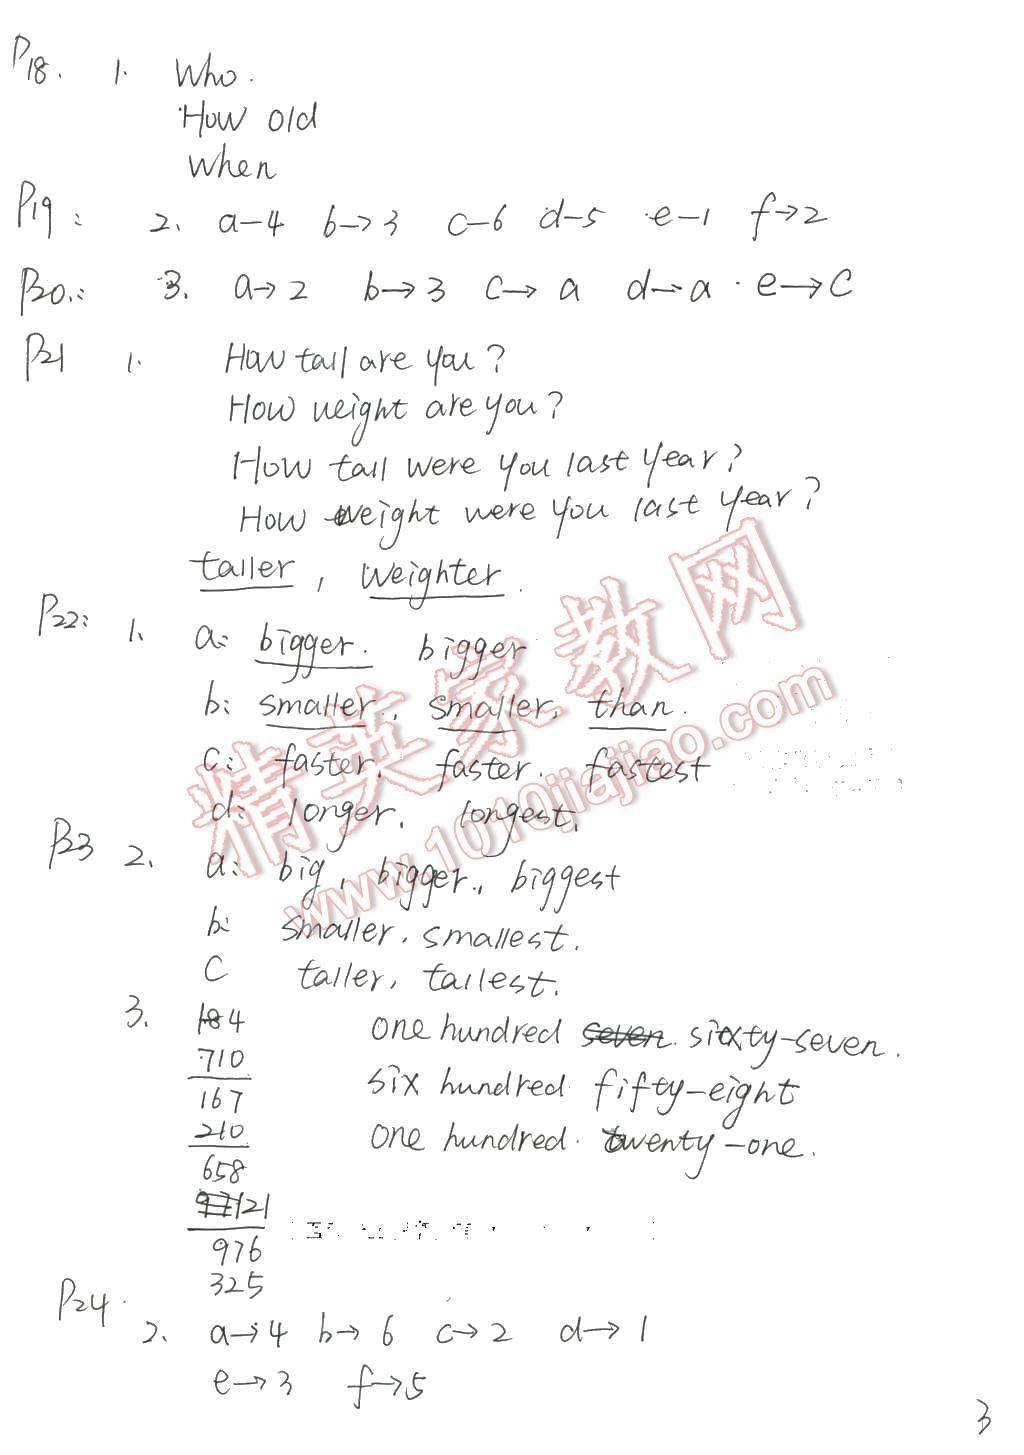 P18. 1. Who.
How old
When
P19: 2. a-4 b→3 c-6 d-5 e-1 f→2
P20: 3. a→2 b→3 c→a d→a e→C
P21 1. How tall are you?
How weight are you?
How tall were you last year?
How weight were you last year?
taller, weighter.
P22: 1. a: bigger. bigger
b: smaller, smaller, than.
c: faster, faster. fastest
d: longer, longest.
P23 2. a: big, bigger, biggest
b: smaller, smallest.
C taller, tallest.
3. 184 one hundred seven sixty-seven.
710 six hundred fifty-eight
167
210 one hundred twenty-one.
658
121
976
325
P24. 2. a→4 b→6 c→2 d→1
e→3 f→5
3
精英家教网
www.1010jiajiao.com